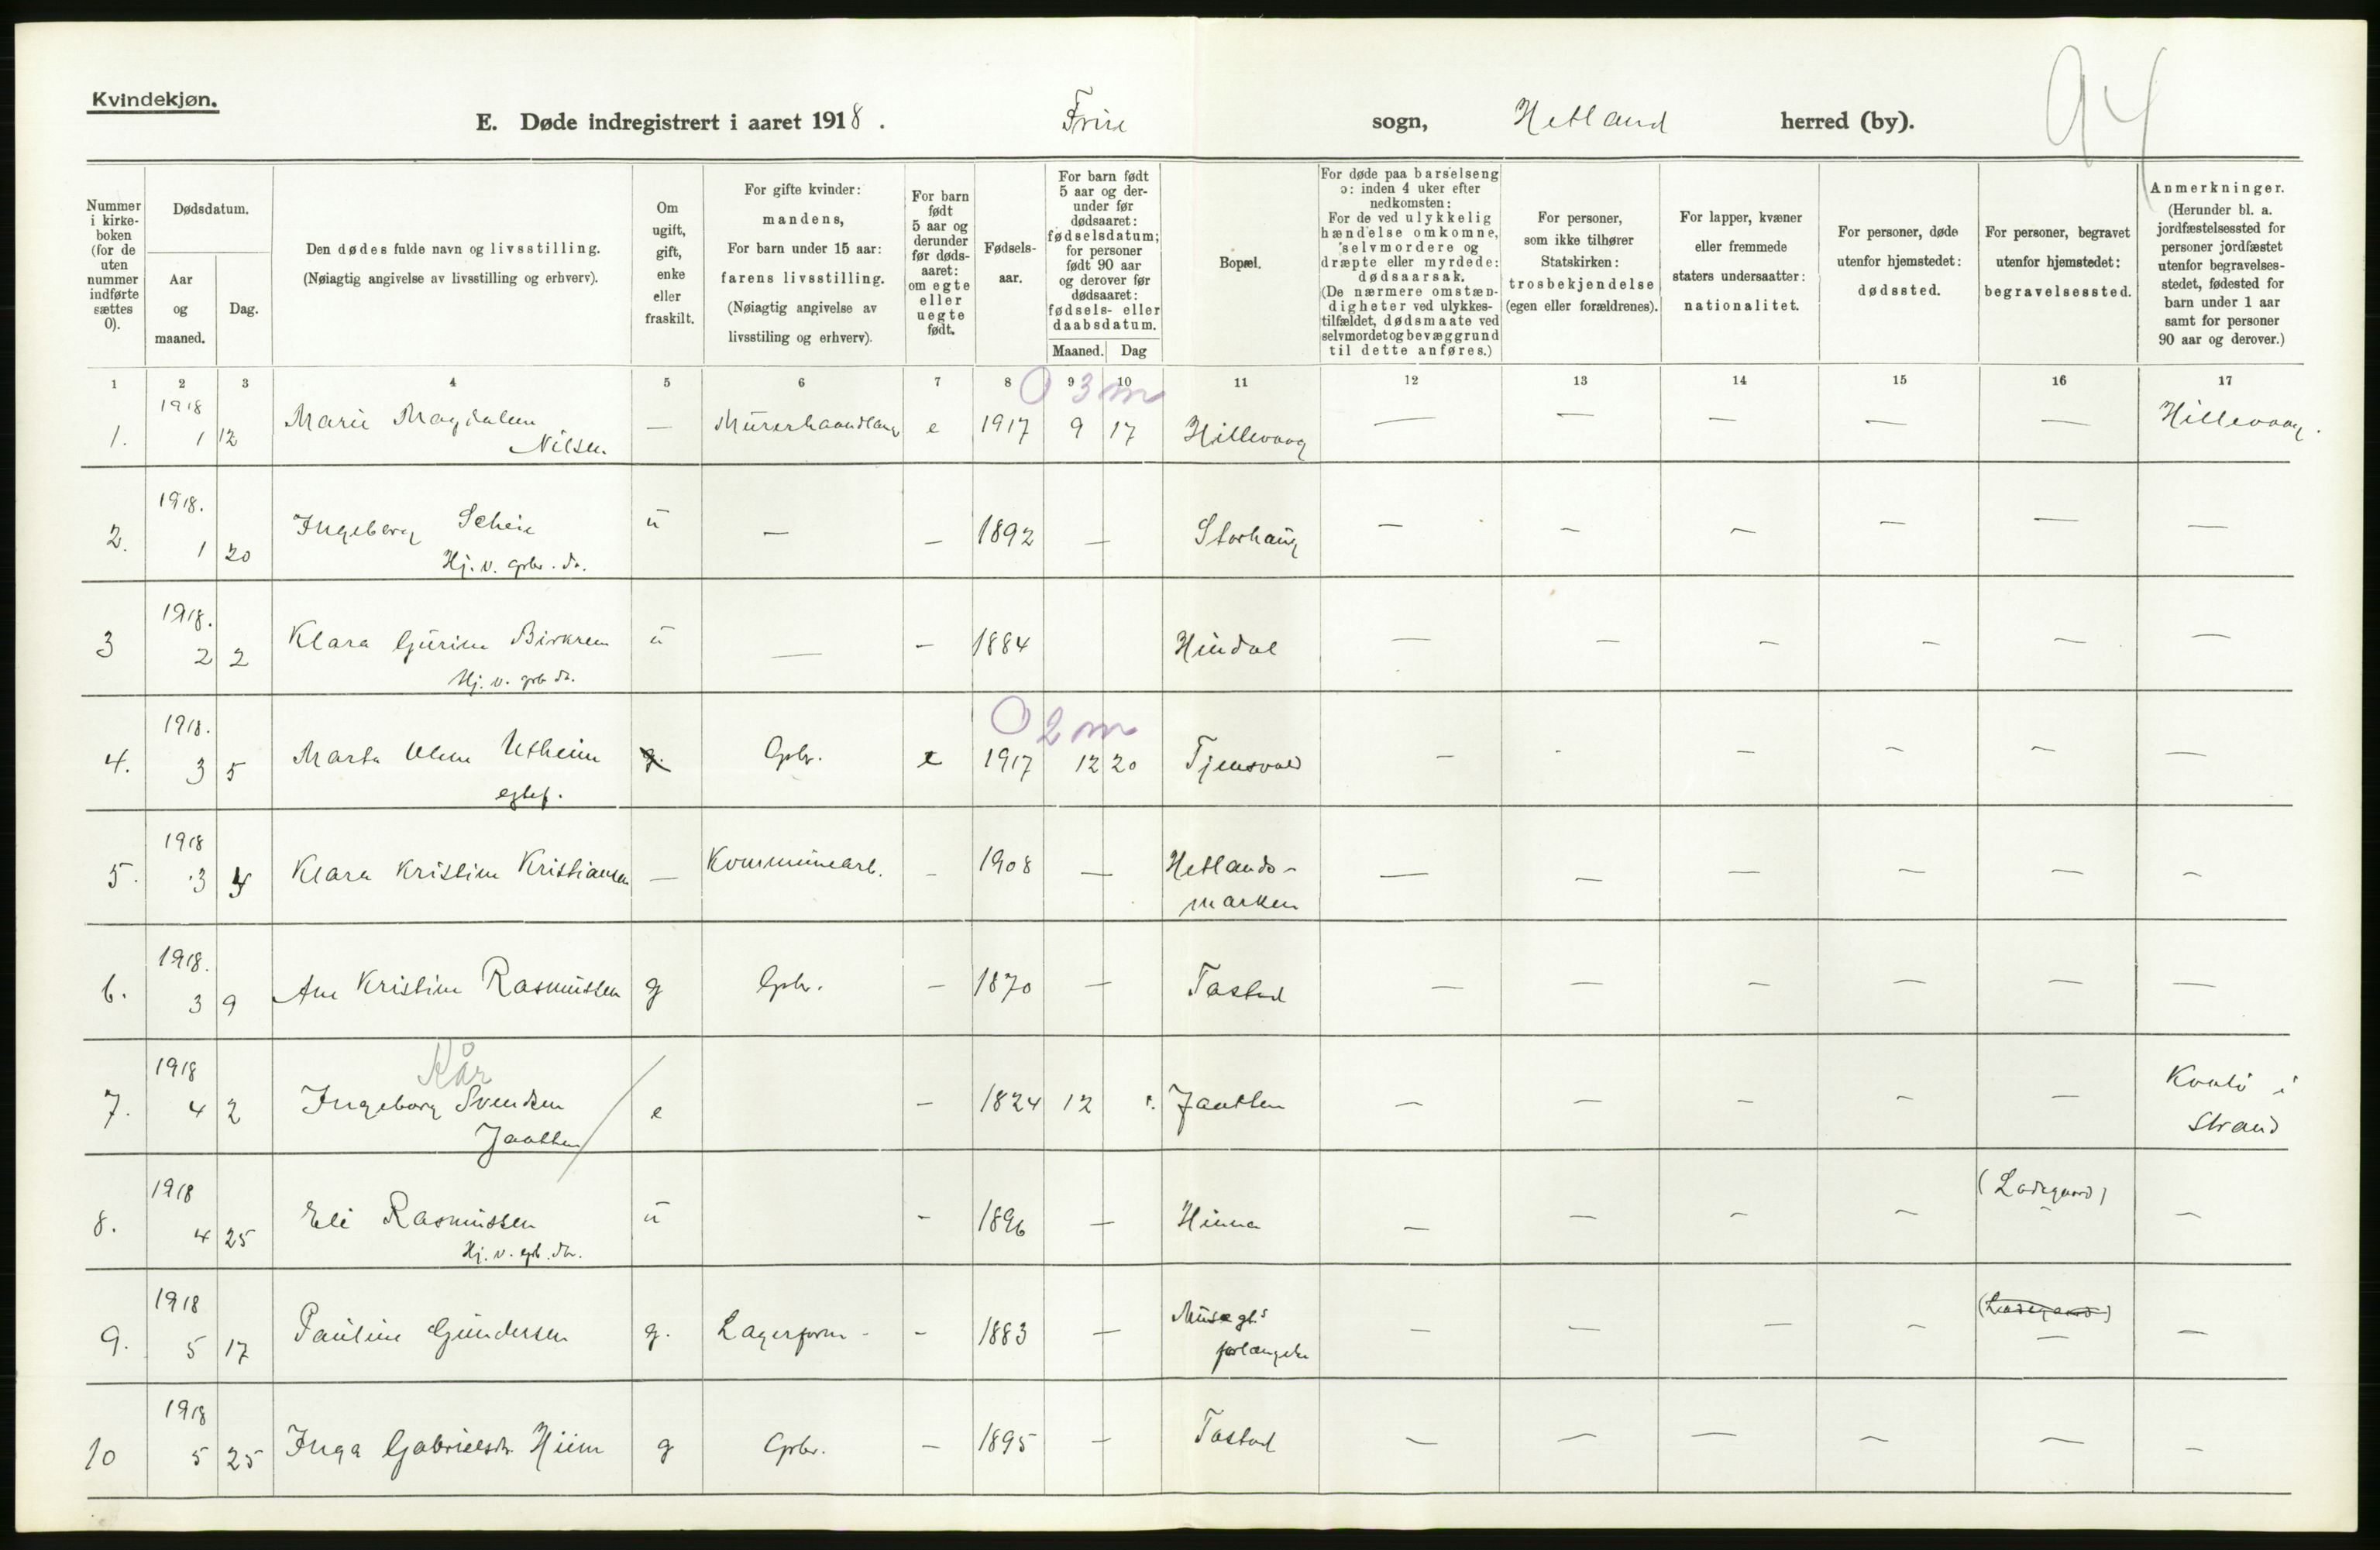 Kvindekjøn.
E. Døde indregistrert i aaret 1918. Frue sogn, Hetland herred (by).
94
Nummer i kirkeboken (for de uten nummer indførte sættes 0).
Dødsdatum.
Aar og maaned.
Dag.
Den dødes fulde navn og livsstilling.
(Nøiagtig angivelse av livsstilling og erhverv).
Om ugift, gift, enke eller fraskilt.
For gifte kvinder: mandens,
For barn under 15 aar: farens livsstilling.
(Nøiagtig angivelse av livsstiling og erhverv).
For barn født 5 aar og derunder før dødsaaret: om egte eller uegte født.
Fødselsaar.
For barn født 5 aar og derunder før dødsaaret: fødselsdatum; for personer født 90 aar og derover før dødsaaret: fødsels- eller daabsdatum.
Maaned. Dag
Bopæl.
For døde paa barselseng ɔ: inden 4 uker efter nedkomsten:
For de ved ulykkelig hændelse omkomne, selvmordere og dræpte eller myrdede: dødsaarsak.
(De nærmere omstændigheter ved ulykkestilfældet, dødsmaate ved selvmordet og bevæggrund til dette anføres.)
For personer, som ikke tilhører Statskirken: trosbekjendelse (egen eller forældrenes).
For lapper, kvæner eller fremmede staters undersaatter: nationalitet.
For personer, døde utenfor hjemstedet: dødssted.
For personer, begravet utenfor hjemstedet: begravelsessted.
Anmerkninger.
(Herunder bl. a. jordfæstelsessted for personer jordfæstet utenfor begravelsesstedet, fødested for barn under 1 aar samt for personer 90 aar og derover.)
1 2 3 4 5 6 7 8 9 10 11 12 13 14 15 16 17
0 3 m
1. 1918 1 12 Marie Magdalene Nilsen — Murerhaandlang e 1917 9 17 Hillevaag — — — — — Hillevaag.
2. 1918. 1 20 Ingeborg Scheie Hj. v. gbr. dr. u — — 1892 — Storhaug — — — — — —
3 1918. 2 2 Klara Gurine Birkrem Hj. v. gbr dr. u — — 1884 Hindal — — — — — —
0 2 m
4. 1918. 3 5 Marta Oline Utheim egtef. g. Gbr. e 1917 12 20 Tjensvold — - — — — —
5. 1918 3 4 Klara Kristine Kristiansen — Kommunearb. — 1908 — Hetlands-marken — — — — — —
6. 1918. 3 9 Ane Kristine Rasmussen g Gbr. — 1870 — Tastad — — — — — —
Kår
7. 1918 4 2 Ingeborg Svendsen Jaatten e — 1824 12 Jaatten — — — — — i Strand
8. 1918 4 25 Eli Rasmussen Hj. v. grb. dtr. u — 1896 — Hinna — — — — (Ladegaard) — —
9. 1918 5 17 Pauline Gundersen g. Lagerform - — 1883 — Musegt.s forlængelse — — — — (Ladegaard) — —
10 1918 5 25 Inga Gabrielsdr. Hiim g Gbr. — 1895 — Tastad — — — — — —